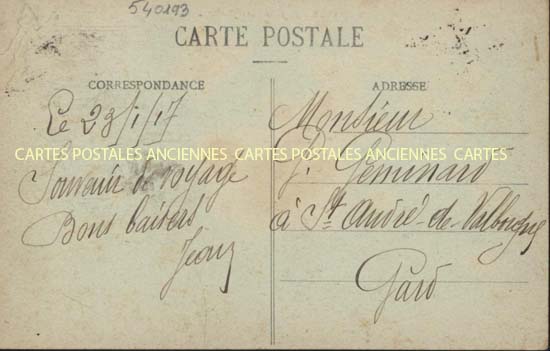 540193
CARTE POSTALE
CORRESPONDANCE
Le 23/1/17
Souvenir de voyage
Bons baisers
ADRESSE
Monsieur
à St André-de-Valborgne
Gard
CARTES POSTALES ANCIENNES CARTES POSTALES ANCIENNES CARTES